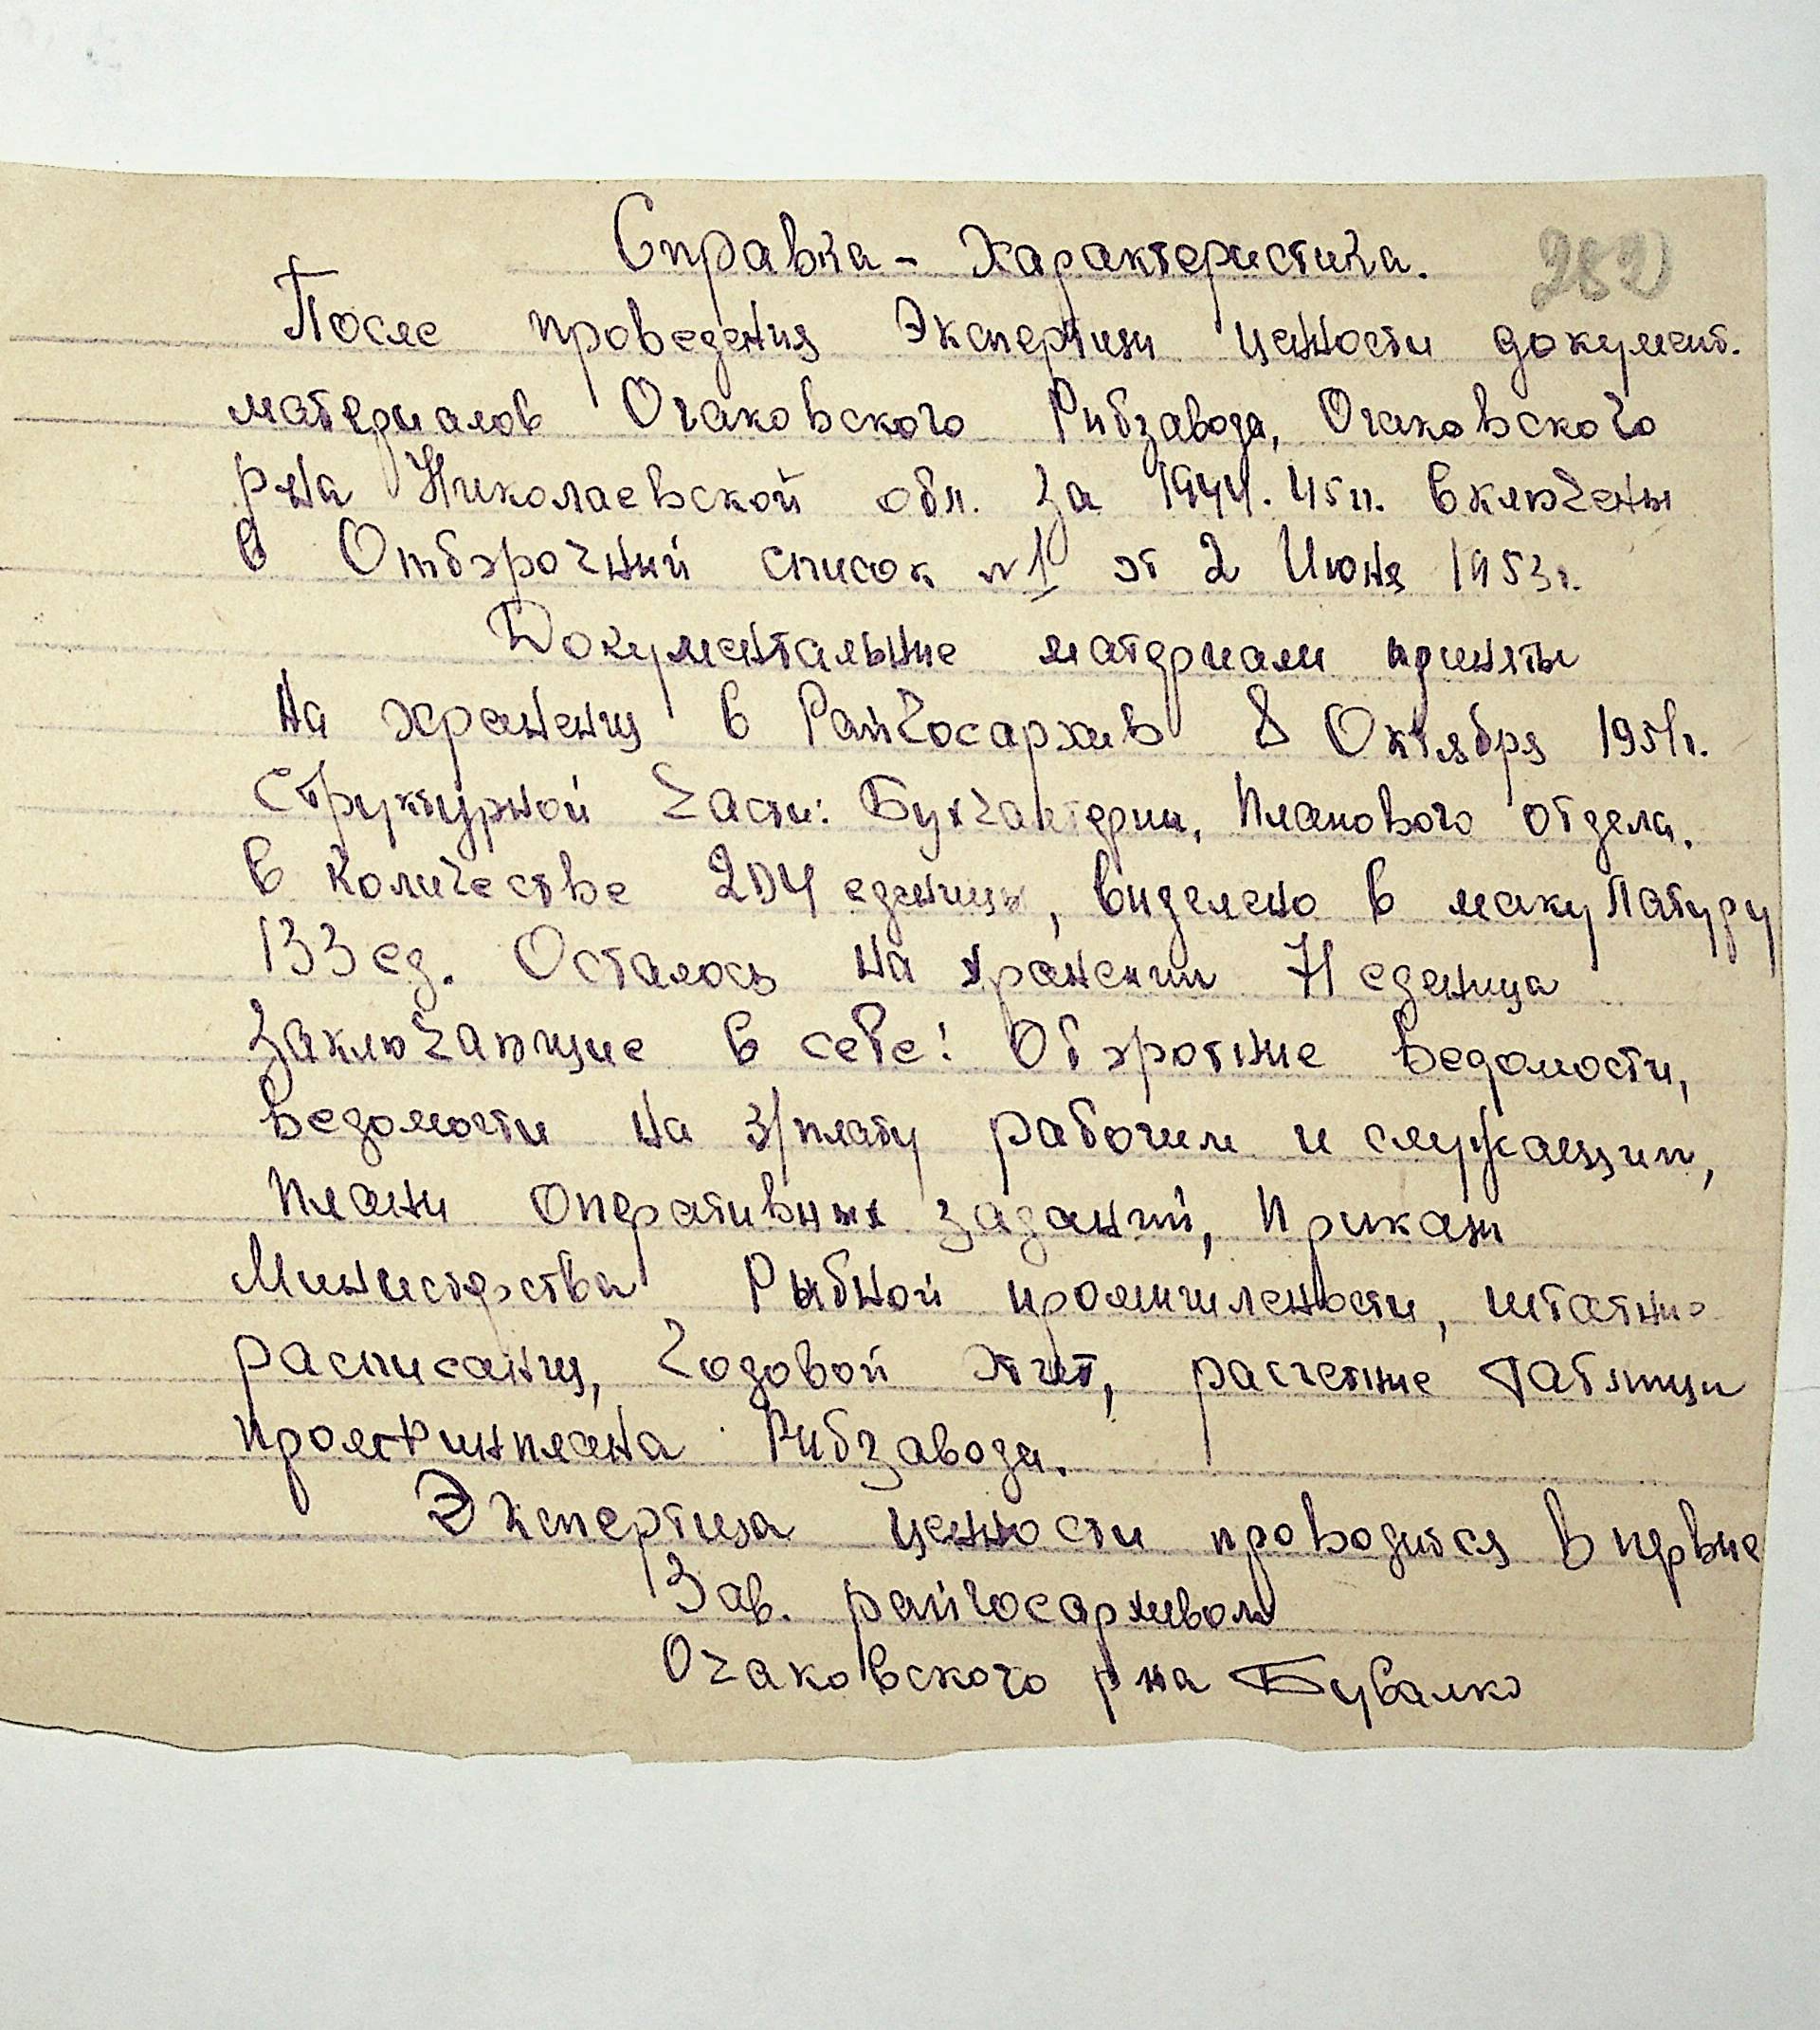 Справка - Характеристика.
282
После проведения Экспертизи ценности документ.
материалов Очаковского Рибзавода, Очаковского
р-на Николаевской обл. за 1944. 45 гг. включены
в Отборочний список №1 от 2 Июня 1953г.
Документальние материали приняты
на хранения в Райгосархив 8 Октября 1951г.
Структурной части: Бухгалтерии, Планового отдела.
в количестве 204 едениц, виделено в макулатуру
133 ед. Осталось на хранении 71 еденица
заключающие в себе: Оборотние ведомости,
ведомости на з/плату рабочим и служащим,
плани оперативных заданий, Прикази
Министерства Рыбной промишлености, штатни
расписания, Годовой отчет, расчетние таблици
промфинплана Рибзавода.
Экспертиза ценности проводится в первие
Зав. райгосархивом
Очаковского р-на Бувалко